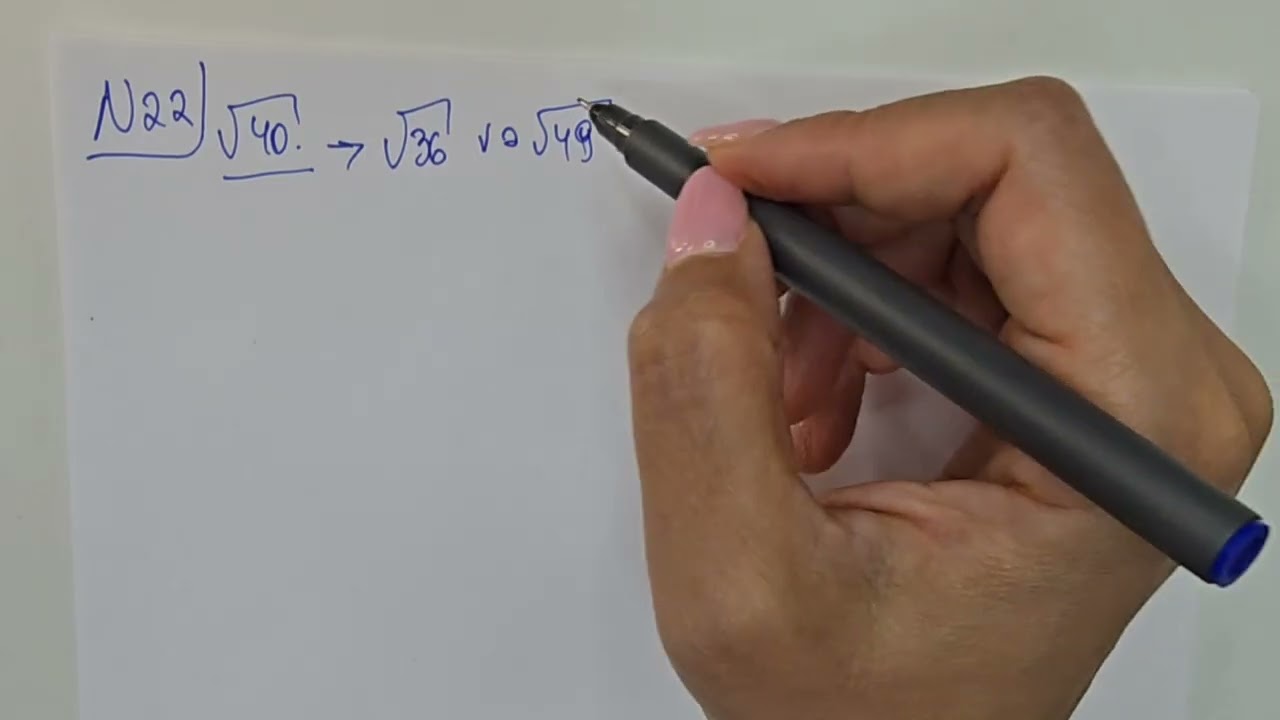 N22) √40. → √36 və √49